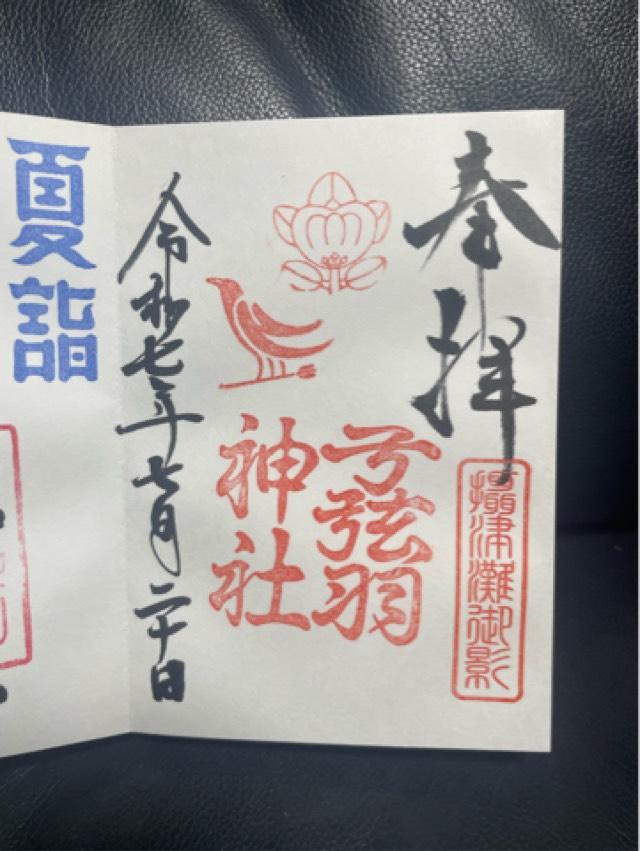 奉拝
摂津灘御影
弓弦羽
神社
令和七年七月二十日
夏詣